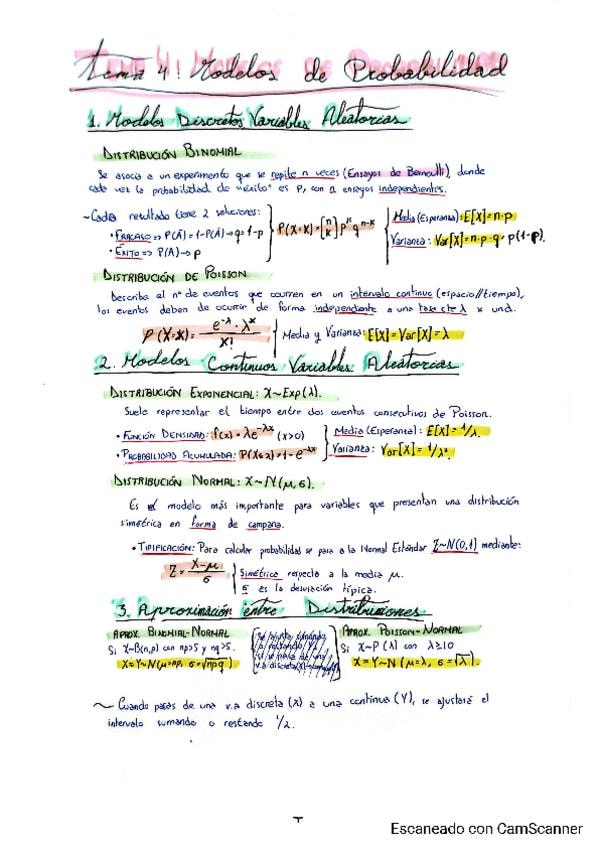 Tema 4: Modelos de Probabilidad
1. Modelos Discretos Variables Aleatorias
DISTRIBUCIÓN BINOMIAL
Se asocia a un experimento que se repite n veces (Ensayos de Bernoulli), donde
cada vez la probabilidad de "éxito" es P, con n ensayos independientes.
~Cada resultado tiene 2 soluciones:
• FRACASO => P(Ā)=1-P(A)->q=1-p
• ÉXITO => P(A)->p
P(X=K)=[n K] p^k q^n-k
Media (Esperanza)=E[X]=n·p
Varianza: Var[X]=n·p·q → p(1-p).
DISTRIBUCIÓN DE POISSON
Describe el nº de eventos que ocurren en un intervalo continuo (espacio//tiempo),
los eventos deben de ocurrir de forma independiente a una tasa cte λ x und.
P(X=x)= e^-λ · λ^x / x!
Media y Varianza: E[X]=Var[X]=λ
2. Modelos Continuos Variables Aleatorias
DISTRIBUCIÓN EXPONENCIAL: X~Exp(λ).
Suele representar el tiempo entre dos eventos consecutivos de Poisson.
• FUNCIÓN DENSIDAD: f(x)=λe^-λx (x>0)
• PROBABILIDAD ACUMULADA: P(X≤x)=1-e^-λx
Media (Esperanza): E[X]=1/λ.
Varianza: Var[X]=1/λ².
DISTRIBUCIÓN NORMAL: X~N(μ,σ).
Es el modelo más importante para variables que presentan una distribución
simétrica en forma de campana.
• TIPIFICACIÓN: Para calcular probabilidad se pasa a la Normal Estándar Z~N(0,1) mediante:
Z= X-μ / σ
Simétrica respecto a la media μ.
σ es la desviación típica.
3. Aproximación entre Distribuciones
APROX. BINOMIAL-NORMAL
Si X~B(n,p) con np>5 y nq>5.
X≈Y~N(μ=np, σ=√npq)
APROX. POISSON-NORMAL
Si X~P(λ) con λ≥10
X≈Y~N(μ=λ, σ=√λ).
~ Cuando pasas de una v.a discreta (X) a una continua (Y), se ajustará el
intervalo sumando o restando 1/2.
Escaneado con CamScanner